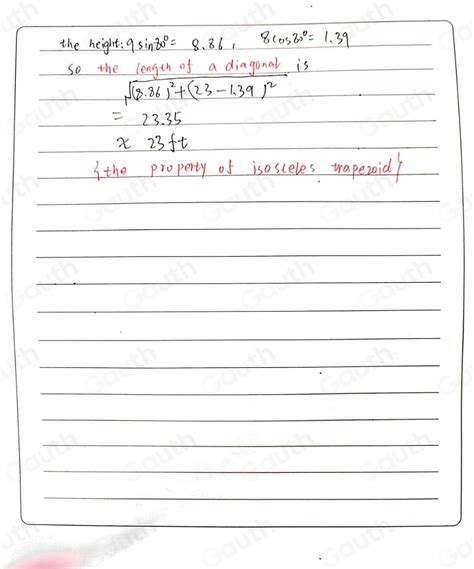 the height: 9 sin80° = 8.86, 8cos80° = 1.39
so the length of a diagonal is
√(8.86)²+(23-1.39)²
= 23.35
≈ 23ft
{the property of isosceles trapezoid}